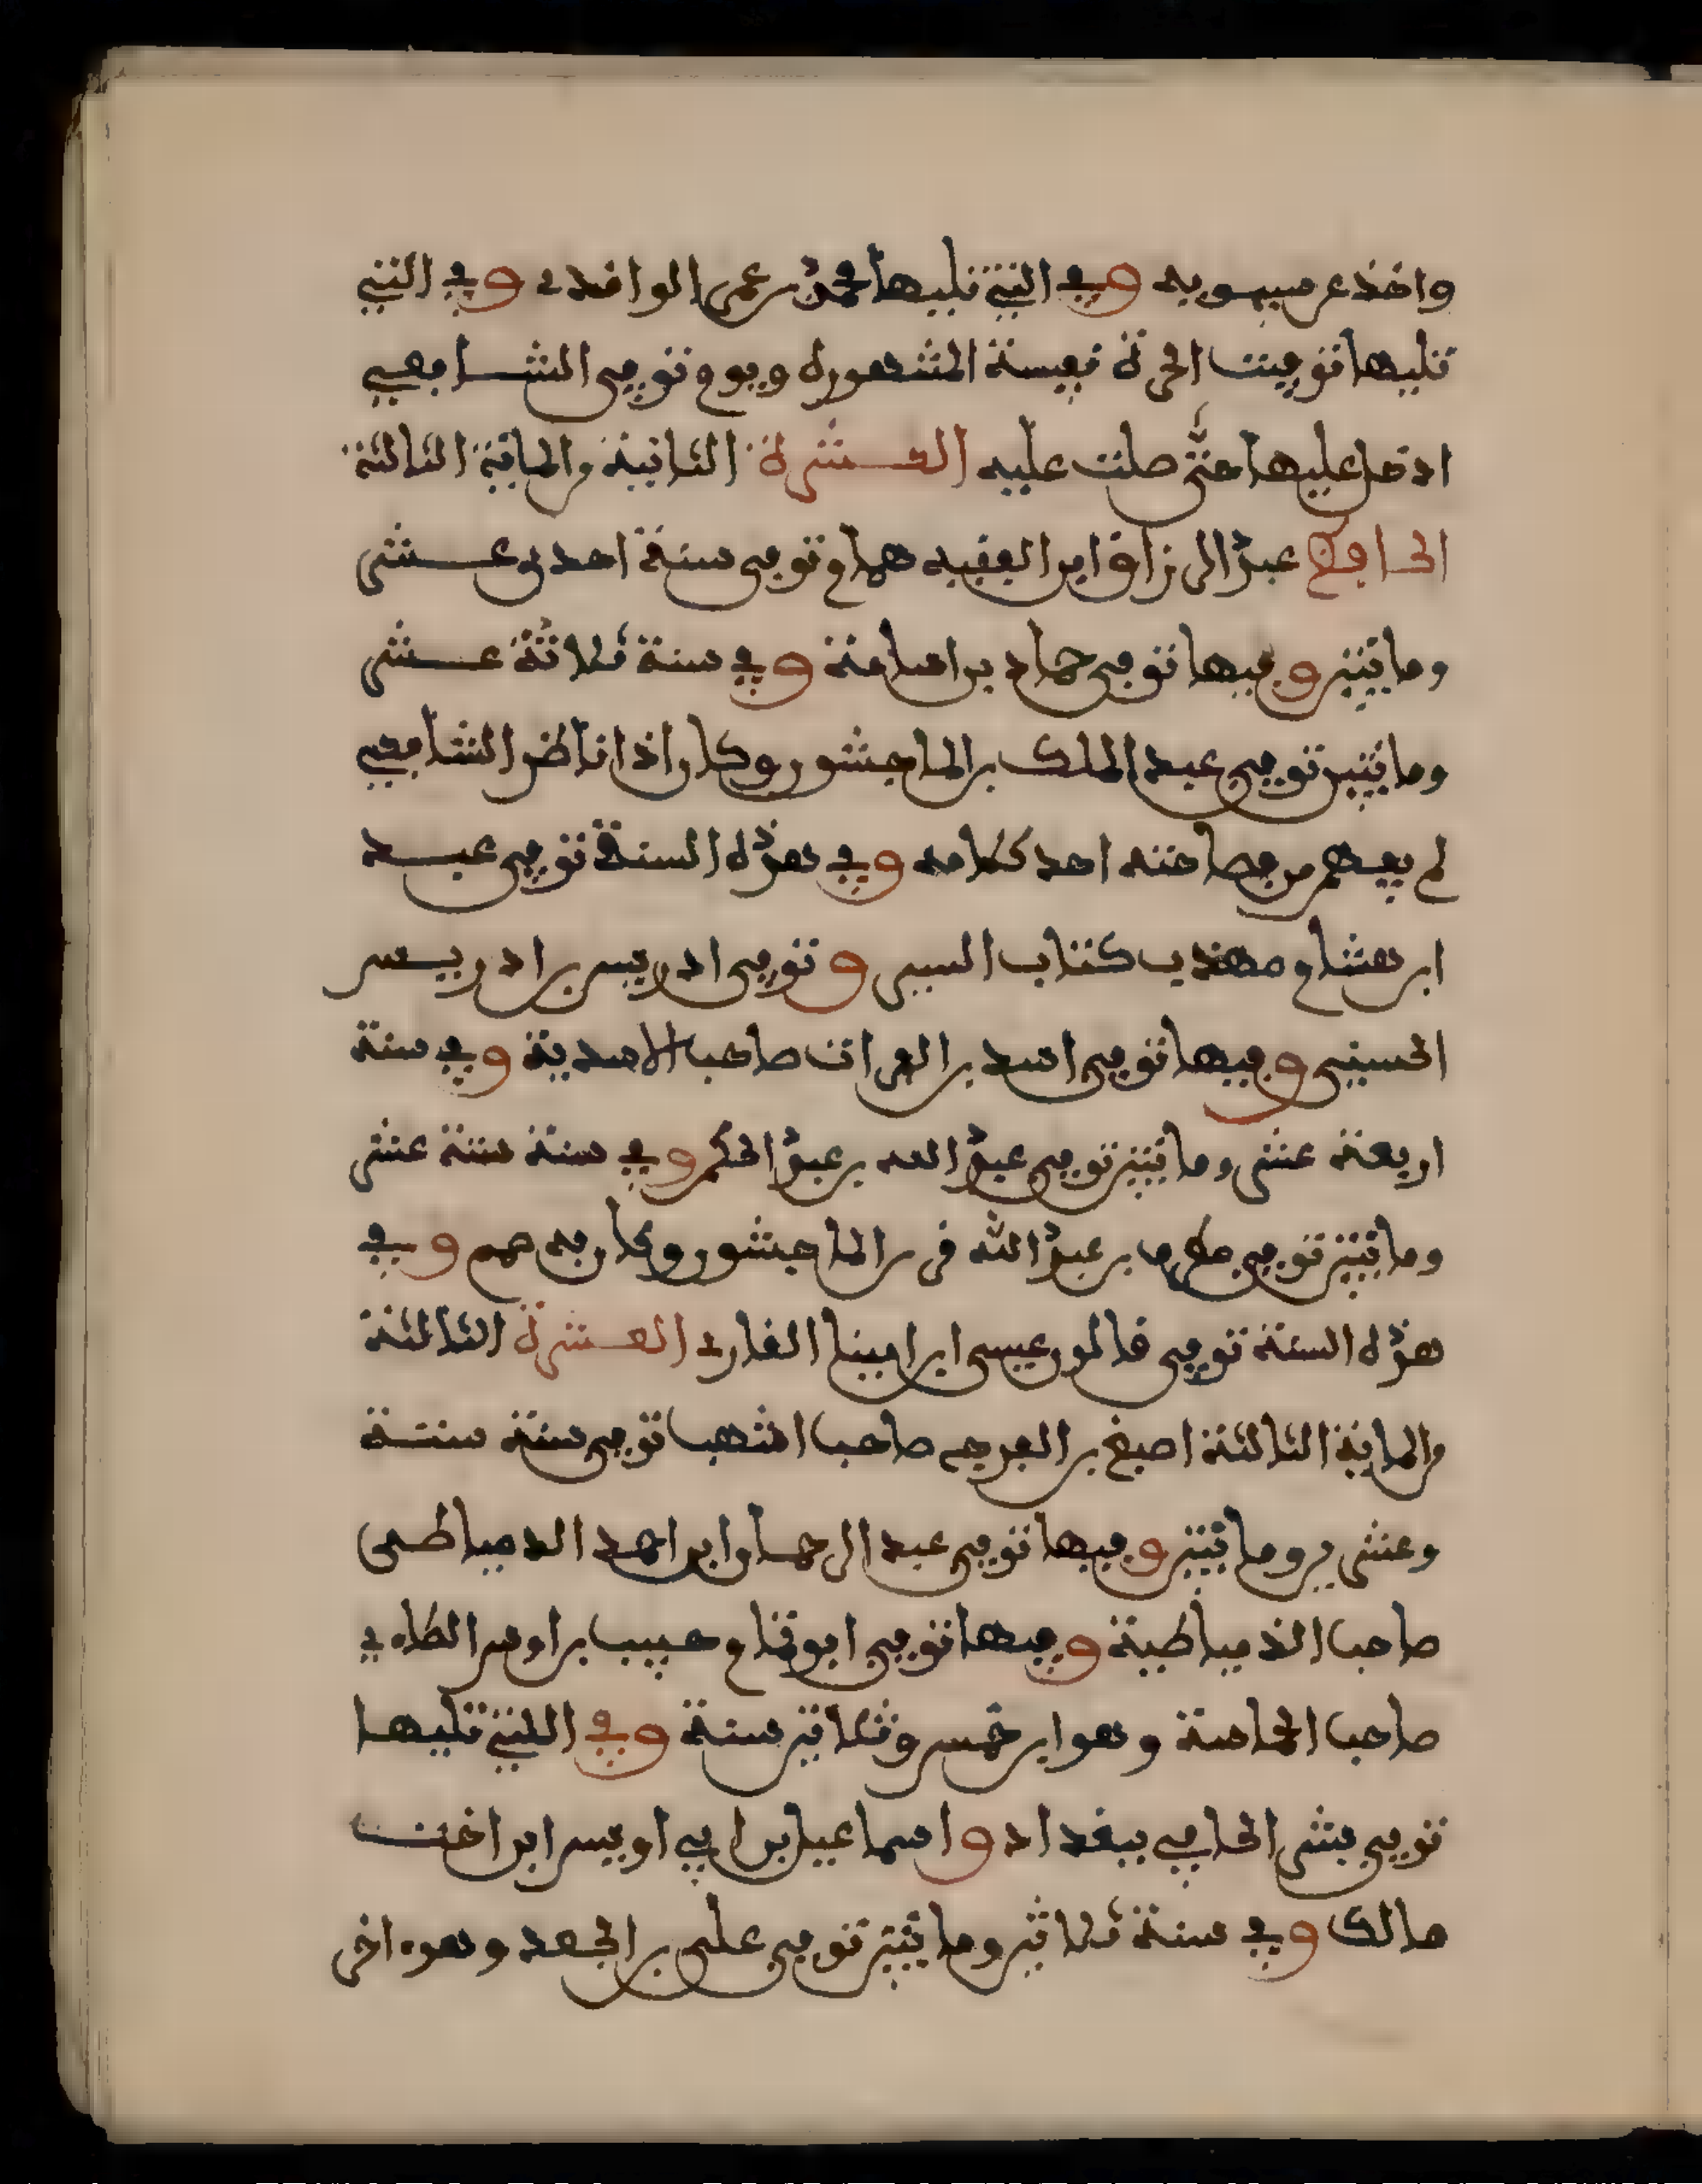 واخذ عن سيبويه وفي التي تليها محمد بن عمر الواقدي وفي التي
تليها توفيت الحرة نفيسة المشهورة ويوم توفي الشافعي
ادخل عليها حتى صلت عليه العشرة الثانية من الماية الثالثة
الحافظ عبد الرزاق ابن الفقيه همام توفي سنة احدى عشر
ومايتين وفيها توفي حماد بن اسامة وفي سنة ثلاثة عشر
ومايتين توفي عبد الملك بن الماجشون وكان اذا ناظر الشافعي
لم يفهم من فصاحته احد كلامه وفي هذه السنة توفي عبد
ابن هشام مهذب كتاب السير وتوفي ادريس بن ادريس
الحسيني وفيها توفي اسد بن الفرات صاحب الاسدية وفي سنة
اربعة عشر ومايتين توفي عبد الله بن عبد الحكم وفي سنة ستة عشر
ومايتين توفي بن عبد الله بن الماجشون وكان به صمم وفي
هذه السنة توفي قالون عيسى ابن امينا القارئ العشرة الثالثة
من الماية الثالثة اصبغ بن الفرج صاحب اشهب توفي سنة ستة
وعشرين ومايتين وفيها توفي عبد الرحمان ابن احمد الدمياطي
صاحب الدمياطية وفيها توفي ابو تمام حبيب بن اوس الطاءي
صاحب الحماسة وهو ابن خمس وثلاثين سنة وفي اللتي تليها
توفي بشر الحافي ببغداد واسماعيل بن ابي اويس ابن اخت
مالك وفي سنة ثلاثين ومايتين توفي علي بن الجعد وهو ءاخر